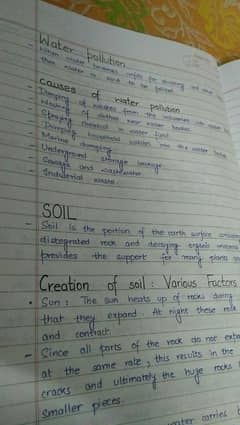 Water pollution
- When water becomes unfit for drinking and other
then water is said to be polluted
causes of water pollution
Dumping of wastes from the industries
Washing of clothes near water bodies
Spraying chemical in water
Dumping household wastes into the water bodies
Marine dumping
Underground storage leakage
Sewage and wastewater
Industrial waste.
SOIL
- Soil is the portion of the earth surface
disintegrated rock and decaying organic
provides the support for many plants
Creation of soil : Various Factors
• Sun : The sun heats up of rocks during
that they expand. At night these rock
and contract.
- Since all parts of the rock do not
at the same rate, this results in the
cracks and ultimately the huge rocks
smaller pieces.
water carries